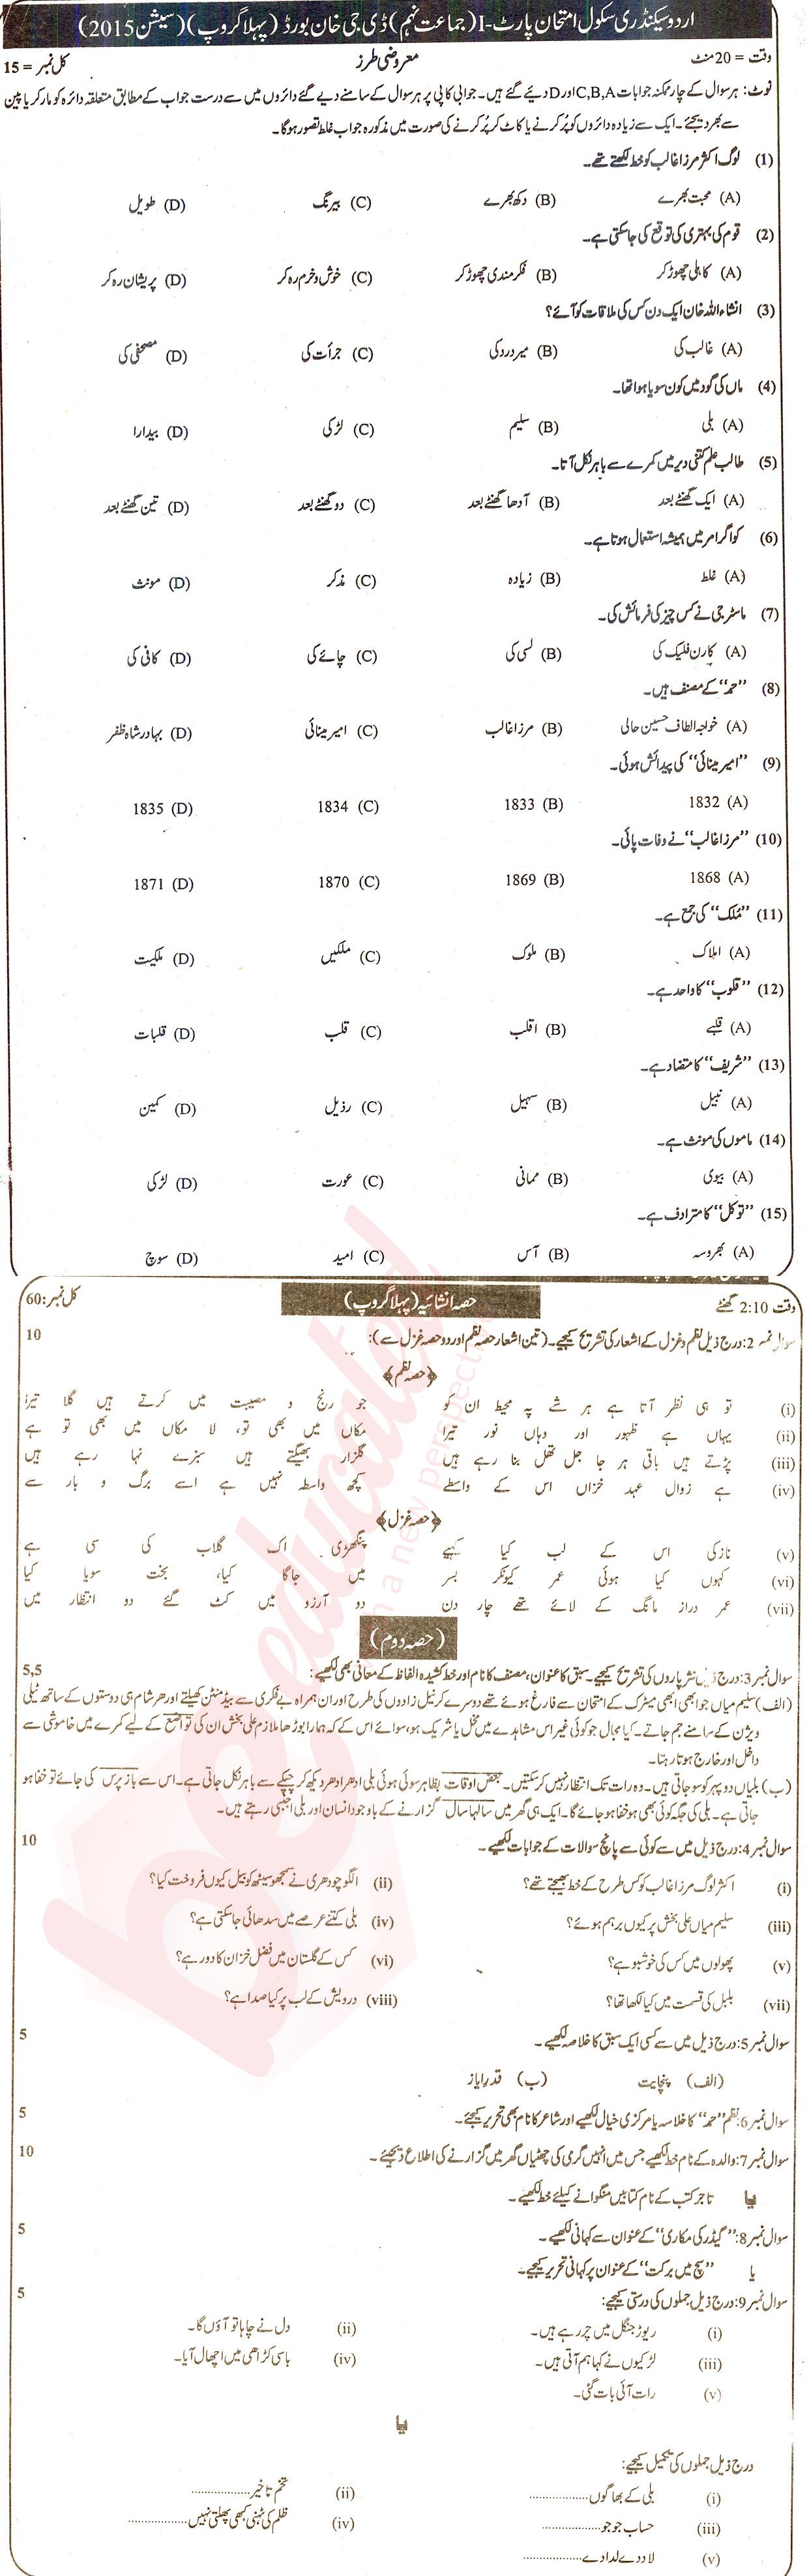 اردو سیکنڈری سکول امتحان پارٹ-I (جماعت نہم) ڈی جی خان بورڈ (پہلا گروپ) (سیشن 2015)
وقت = 20 منٹ معروضی طرز کل نمبر = 15
نوٹ: ہر سوال کے چار ممکنہ جوابات C,B,A اور D دیئے گئے ہیں۔ جوابی کاپی پر ہر سوال کے سامنے دیے گئے دائروں میں سے درست جواب کے مطابق متعلقہ دائرہ کو مارکر یا پین
سے بھر دیجئے۔ ایک سے زیادہ دائروں کو پُر کرنے یا کاٹ کر پُر کرنے کی صورت میں مذکورہ جواب غلط تصور ہو گا۔
(1) لوگ اکثر مرزا غالب کو خط لکھتے تھے۔
(A) محبت بھرے (B) دکھ بھرے (C) بیرنگ (D) طویل
(2) قوم کی بہتری کی توقع کی جا سکتی ہے۔
(A) کاہلی چھوڑ کر (B) فکر مندی چھوڑ کر (C) خوش و خرم رہ کر (D) پریشان رہ کر
(3) انشاء اللہ خان ایک دن کس کی ملاقات کو آئے؟
(A) غالب کی (B) میر درد کی (C) جرأت کی (D) مصحفی کی
(4) ماں کی گود میں کون سویا ہوا تھا۔
(A) بلی (B) سلیم (C) لڑکی (D) بیدارا
(5) طالب علم کتنی دیر میں کمرے سے باہر نکل آتا۔
(A) ایک گھنٹے بعد (B) آدھا گھنٹے بعد (C) دو گھنٹے بعد (D) تین گھنٹے بعد
(6) کوا گرامر میں ہمیشہ استعمال ہوتا ہے۔
(A) غلط (B) زیادہ (C) مذکر (D) مونث
(7) ماسٹر جی نے کس چیز کی فرمائش کی۔
(A) کارن فلیک کی (B) لسی کی (C) چائے کی (D) کافی کی
(8) "حمد" کے مصنف ہیں۔
(A) خواجہ الطاف حسین حالی (B) مرزا غالب (C) امیر مینائی (D) بہادر شاہ ظفر
(9) "امیر مینائی" کی پیدائش ہوئی۔
(A) 1832 (B) 1833 (C) 1834 (D) 1835
(10) "مرزا غالب" نے وفات پائی۔
(A) 1868 (B) 1869 (C) 1870 (D) 1871
(11) "مُلک" کی جمع ہے۔
(A) املاک (B) ملوک (C) ملکیں (D) ملکیت
(12) "قلوب" کا واحد ہے۔
(A) قلبے (B) اقلب (C) قلب (D) قلبات
(13) "شریف" کا متضاد ہے۔
(A) نبیل (B) سہیل (C) رذیل (D) کمین
(14) ماموں کی مونث ہے۔
(A) بیوی (B) ممانی (C) عورت (D) لڑکی
(15) "توکل" کا مترادف ہے۔
(A) بھروسہ (B) آس (C) امید (D) سوچ
وقت 2:10 گھنٹے حصہ انشائیہ (پہلا گروپ) کل نمبر:60
سوال نمبر 2: درج ذیل نظم و غزل کے اشعار کی تشریح کیجیے۔ (تین اشعار حصہ نظم اور دو حصہ غزل سے): 10
﴿حصہ نظم﴾
(i) تو ہی نظر آتا ہے ہر شے پہ محیط ان کو جو رنج و مصیبت میں کرتے ہیں گلا تیرا
(ii) یہاں ہے ظہور اور وہاں نور تیرا مکاں میں بھی تو، لا مکاں میں بھی تو ہے
(iii) پڑتے ہیں باقی ہر جا جل تھل بنا رہے ہیں گلزار بھیگتے ہیں سبزے نہا رہے ہیں
(iv) ہے زوال عہد خزاں اس کے واسطے کچھ واسطہ نہیں ہے اسے برگ و بار سے
﴿حصہ غزل﴾
(v) نازکی اس کے لب کیا کہیے پنکھڑی اک گلاب کی سی ہے
(vi) کہوں کیا ہوئی عمر کیونکر بسر میں جاگا کیا، بخت سویا کیا
(vii) عمر دراز مانگ کے لائے تھے چار دن دو آرزو میں کٹ گئے دو انتظار میں
(حصہ دوم)
سوال نمبر 3: درج ذیل نثر پاروں کی تشریح کیجیے۔ سبق کا عنوان، مصنف کا نام اور خط کشیدہ الفاظ کے معانی بھی لکھیے: 5,5
(الف) سلیم میاں جو ابھی ابھی میٹرک کے امتحان سے فارغ ہوئے تھے دوسرے کرنیل زادوں کی طرح اور ان ہمراہ بے فکری سے بیڈمنٹن کھیلتے اور ہر شام ہی دوستوں کے ساتھ ٹیلی
ویژن کے سامنے جم جاتے۔ کیا مجال جو کوئی غیر اس مشاہدے میں مخل یا شریک ہو، سوائے اس کے کہ ہمارا بوڑھا ملازم علی بخش ان کی تواضع کے لیے کمرے میں خاموشی سے
داخل اور خارج ہوتا رہتا۔
(ب) بلیاں دوپہر کو سو جاتی ہیں۔ وہ رات تک انتظار نہیں کر سکتیں۔ بعض اوقات بظاہر سوئی ہوئی بلی ادھر ادھر دیکھ کر چپکے سے باہر نکل جاتی ہے۔ اس سے باز پرس کی جائے تو خفا ہو
جاتی ہے۔ بلی کی جگہ کوئی بھی ہو خفا ہو جائے گا۔ ایک ہی گھر میں سالہا سال گزارنے کے باوجود انسان اور بلی اجنبی رہتے ہیں۔
سوال نمبر 4: درج ذیل میں سے کوئی سے پانچ سوالات کے جوابات لکھیے۔ 10
(i) اکثر لوگ مرزا غالب کو کس طرح کے خط بھیجتے تھے؟ (ii) الگو چودھری نے سمجھو سیٹھ کو بیل کیوں فروخت کیا؟
(iii) سلیم میاں علی بخش پر کیوں برہم ہوئے؟ (iv) بلی کتنے عرصے میں سدھائی جا سکتی ہے؟
(v) پھولوں میں کس کی خوشبو ہے؟ (vi) کس کے گلستان میں فضل خزان کا دور ہے؟
(vii) بلبل کی قسمت میں کیا لکھا تھا؟ (viii) درویش کے لب پر کیا صدا ہے؟
سوال نمبر 5: درج ذیل میں سے کسی ایک سبق کا خلاصہ لکھیے۔ 5
(الف) پنچایت (ب) قدر ایاز
سوال نمبر 6: نظم "حمد" کا خلاصہ یا مرکزی خیال لکھیے اور شاعر کا نام بھی تحریر کیجئے۔ 5
سوال نمبر 7: والدہ کے نام خط لکھیے جس میں انہیں گرمی کی چھٹیاں گھر میں گزارنے کی اطلاع دیجیئے۔ 10
یا تاجر کتب کے نام کتابیں منگوانے کیلئے خط لکھیے۔
سوال نمبر 8: "گیڈر کی مکاری" کے عنوان سے کہانی لکھیے۔ 5
یا "سچ میں برکت" کے عنوان پر کہانی تحریر کیجیے۔
سوال نمبر 9: درج ذیل جملوں کی درستی کیجیے: 5
(i) ریوڑ جنگل میں چر رہے ہیں۔ (ii) دل نے چاہا تو آؤں گا۔
(iii) لڑکیوں نے کہا ہم آتی ہیں۔ (iv) باسی کڑاھی میں اچھال آیا۔
(v) رات آئی بات گئی۔
یا
درج ذیل جملوں کی تکمیل کیجیے:
(i) بلی کے بھاگوں.................. (ii) تخم تاخیر..................
(iii) حساب جو جو.................. (iv) ظلم کی ٹہنی کبھی پھلتی نہیں..................
(v) لاد دے لدا دے..................
beeducated
in a new perspective